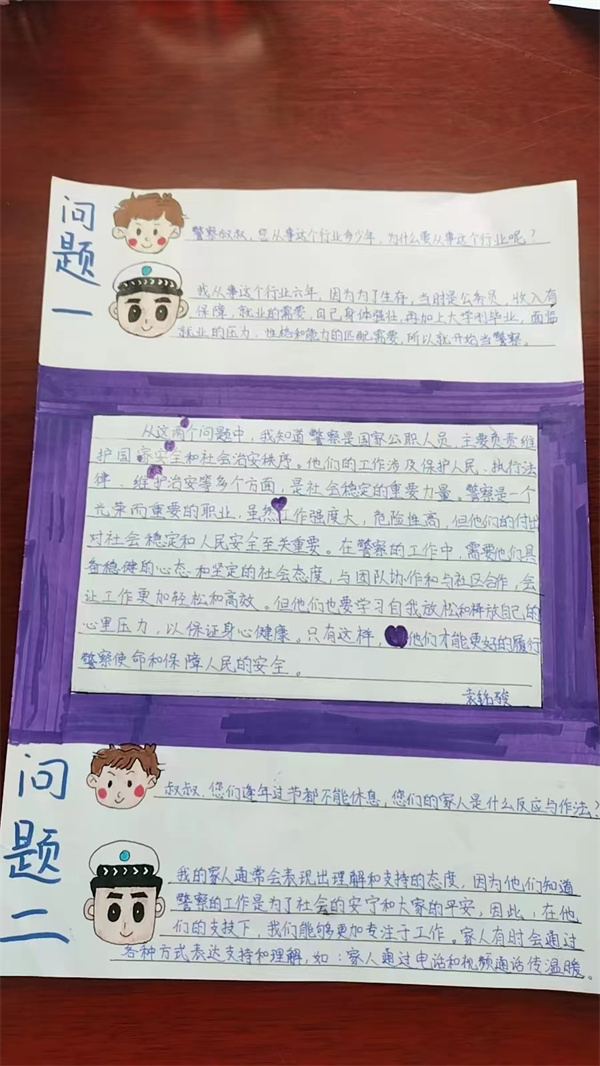 问题一
警察叔叔，您从事这个行业多少年，为什么要从事这个行业呢？
我从事这个行业六年，因为为了生存，当时是公务员，收入有
保障，就业的需要，自己身体强壮，再加上大学刚毕业，面临
就业的压力、性格和能力的匹配需要，所以就开始当警察。
从这两个问题中，我知道警察是国家公职人员，主要负责维
护国家安全和社会治安秩序。他们的工作涉及保护人民、执行法
律、维护治安等多个方面，是社会稳定的重要力量。警察是一个
光荣而重要的职业，虽然工作强度大，危险性高，但他们的付出
对社会稳定和人民安全至关重要。在警察的工作中，需要他们具
备稳健的心态和坚定的社会态度，与团队协作和与社区合作，会
让工作更加轻松和高效。但他们也要学习自我放松和释放自己的
心里压力，以保证身心健康。只有这样，他们才能更好的履行
警察使命和保障人民的安全。
问题二
叔叔，您们逢年过节都不能休息，您们的家人是什么反应与作法？
我的家人通常会表现出理解和支持的态度，因为他们知道
警察的工作是为了社会的安宁和大家的平安，因此，在他
们的支技下，我们能够更加专注于工作。家人有时会通过
各种方式表达支持和理解，如：家人通过电话和视频通话传温暖。